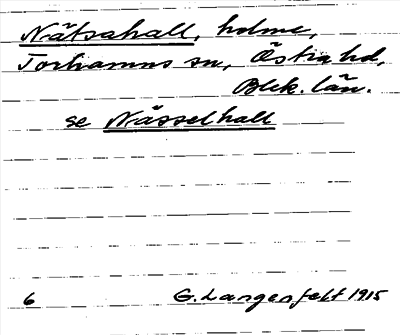 Nätsahall, holme,
Torhamns sn, Östra hd,
Blek. län.
se Nässelhall
6 G. Langenfelt 1915